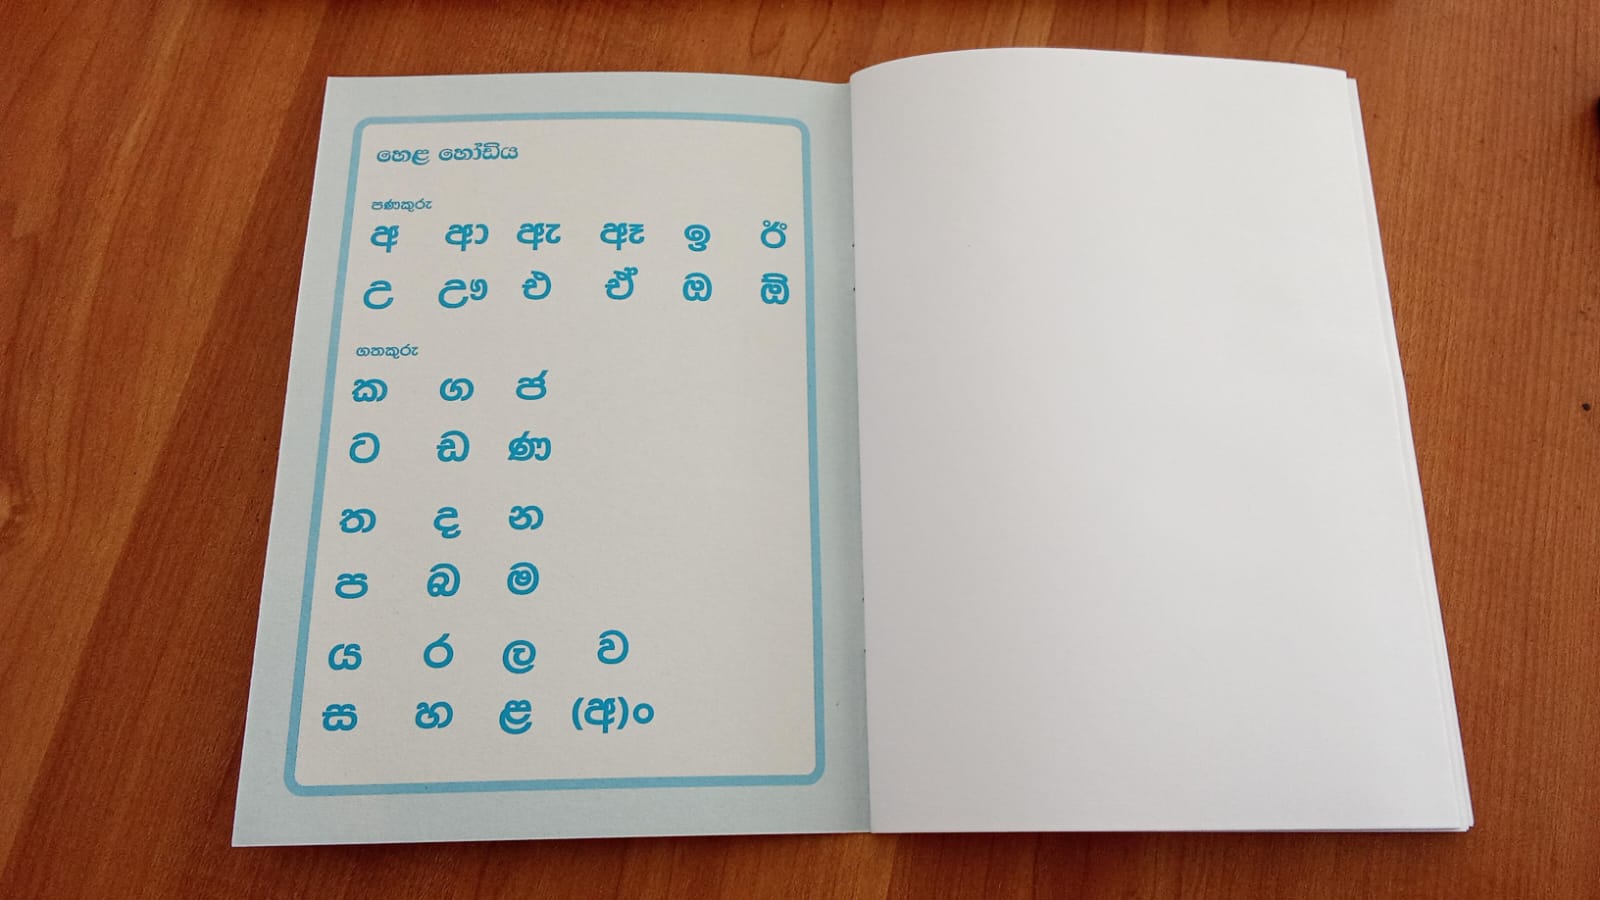 හෙළ හෝඩිය
පණකුරු
අ ආ ඇ ඈ ඉ ඊ
උ ඌ එ ඒ ඔ ඕ
ගතකුරු
ක ග ජ
ට ඩ ණ
ත ද න
ප බ ම
ය ර ල ව
ස හ ළ (අ)ං